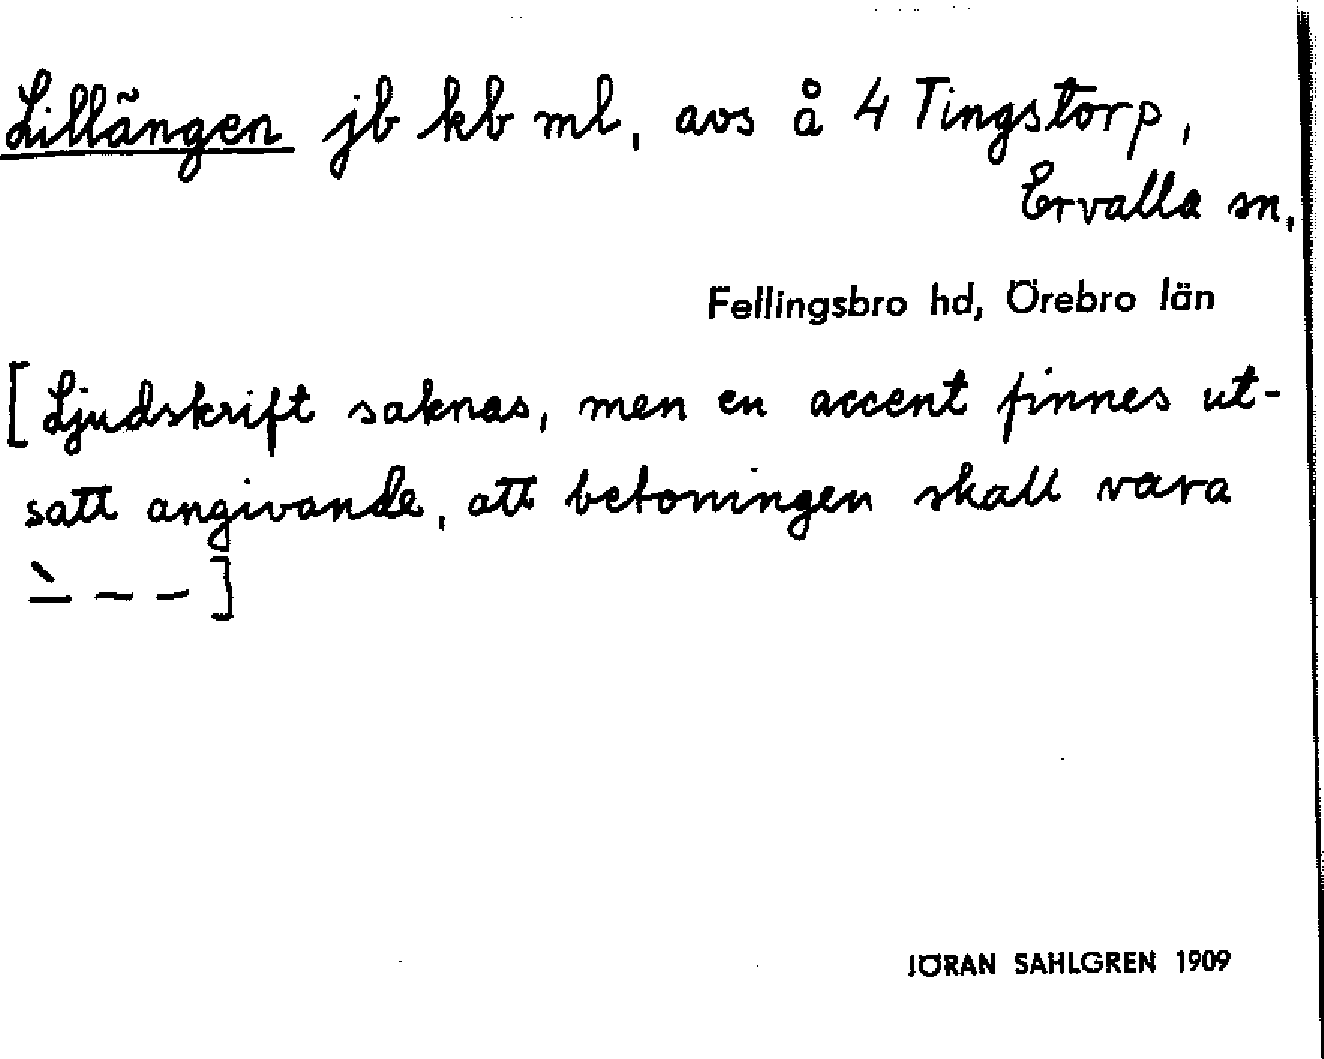 Lillängen jb kb ml, avs å 4 Tingstorp,
Ervalla sn,
Fellingsbro hd, Örebro län
[Ljudskrift saknas, men en accent finnes ut-
satt angivande, att betoningen skall vara
ˋ– – –]
JÖRAN SAHLGREN 1909